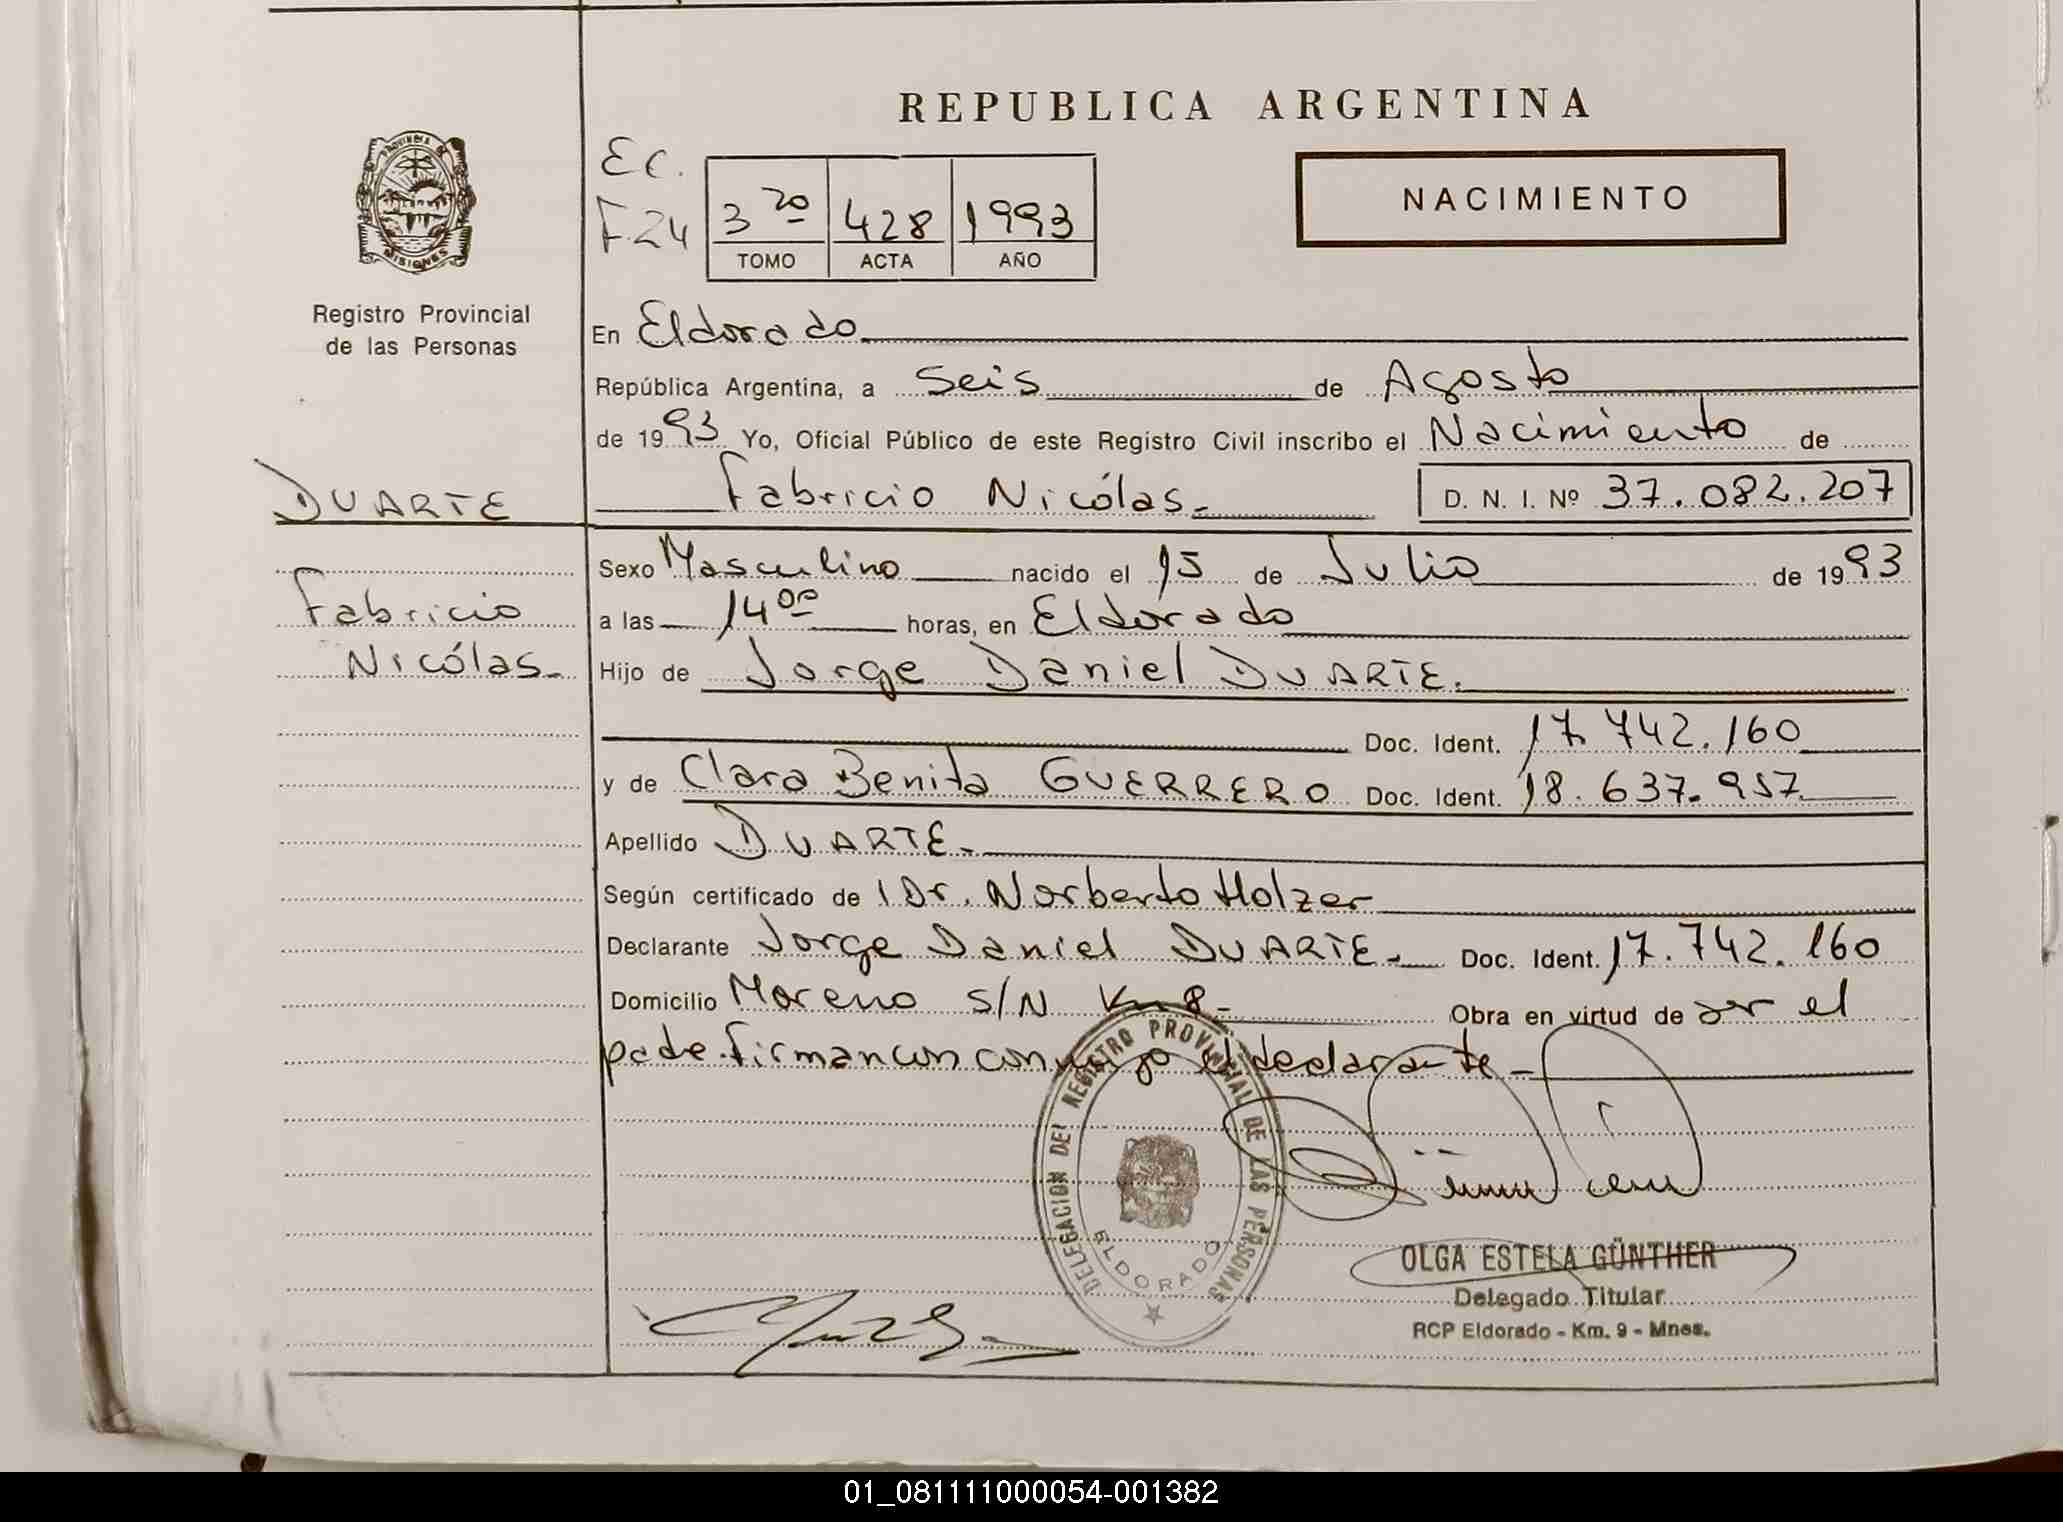 REPUBLICA ARGENTINA
PROVINCIA DE
MISIONES
Registro Provincial
de las Personas
DUARTE
Fabricio
Nicólas.
Ec.
F.24
3 ro 428 1993
TOMO ACTA AÑO
NACIMIENTO
En Eldorado
República Argentina, a Seis de Agosto
de 1993 Yo, Oficial Público de este Registro Civil inscribo el Nacimiento de
Fabricio Nicólas. D. N. I. Nº 37.082.207
Sexo Masculino nacido el 15 de Julio de 1993
a las 14 00 horas, en Eldorado
Hijo de Jorge Daniel DUARTE.
Doc. Ident. 17.742.160
y de Clara Benita GUERRERO Doc. Ident. 18.637.957
Apellido DUARTE.
Según certificado de 1 Dr. Norberto Holzer
Declarante Jorge Daniel DUARTE. Doc. Ident. 17.742.160
Domicilio Moreno S/N Km 8. Obra en virtud de ser el
padre. Firman con conmigo el declarante
DELEGACION DEL REGISTRO PROVINCIAL DE LAS PERSONAS
ELDORADO
OLGA ESTELA GÜNTHER
Delegado Titular
RCP Eldorado - Km. 9 - Mnes.
01_081111000054-001382